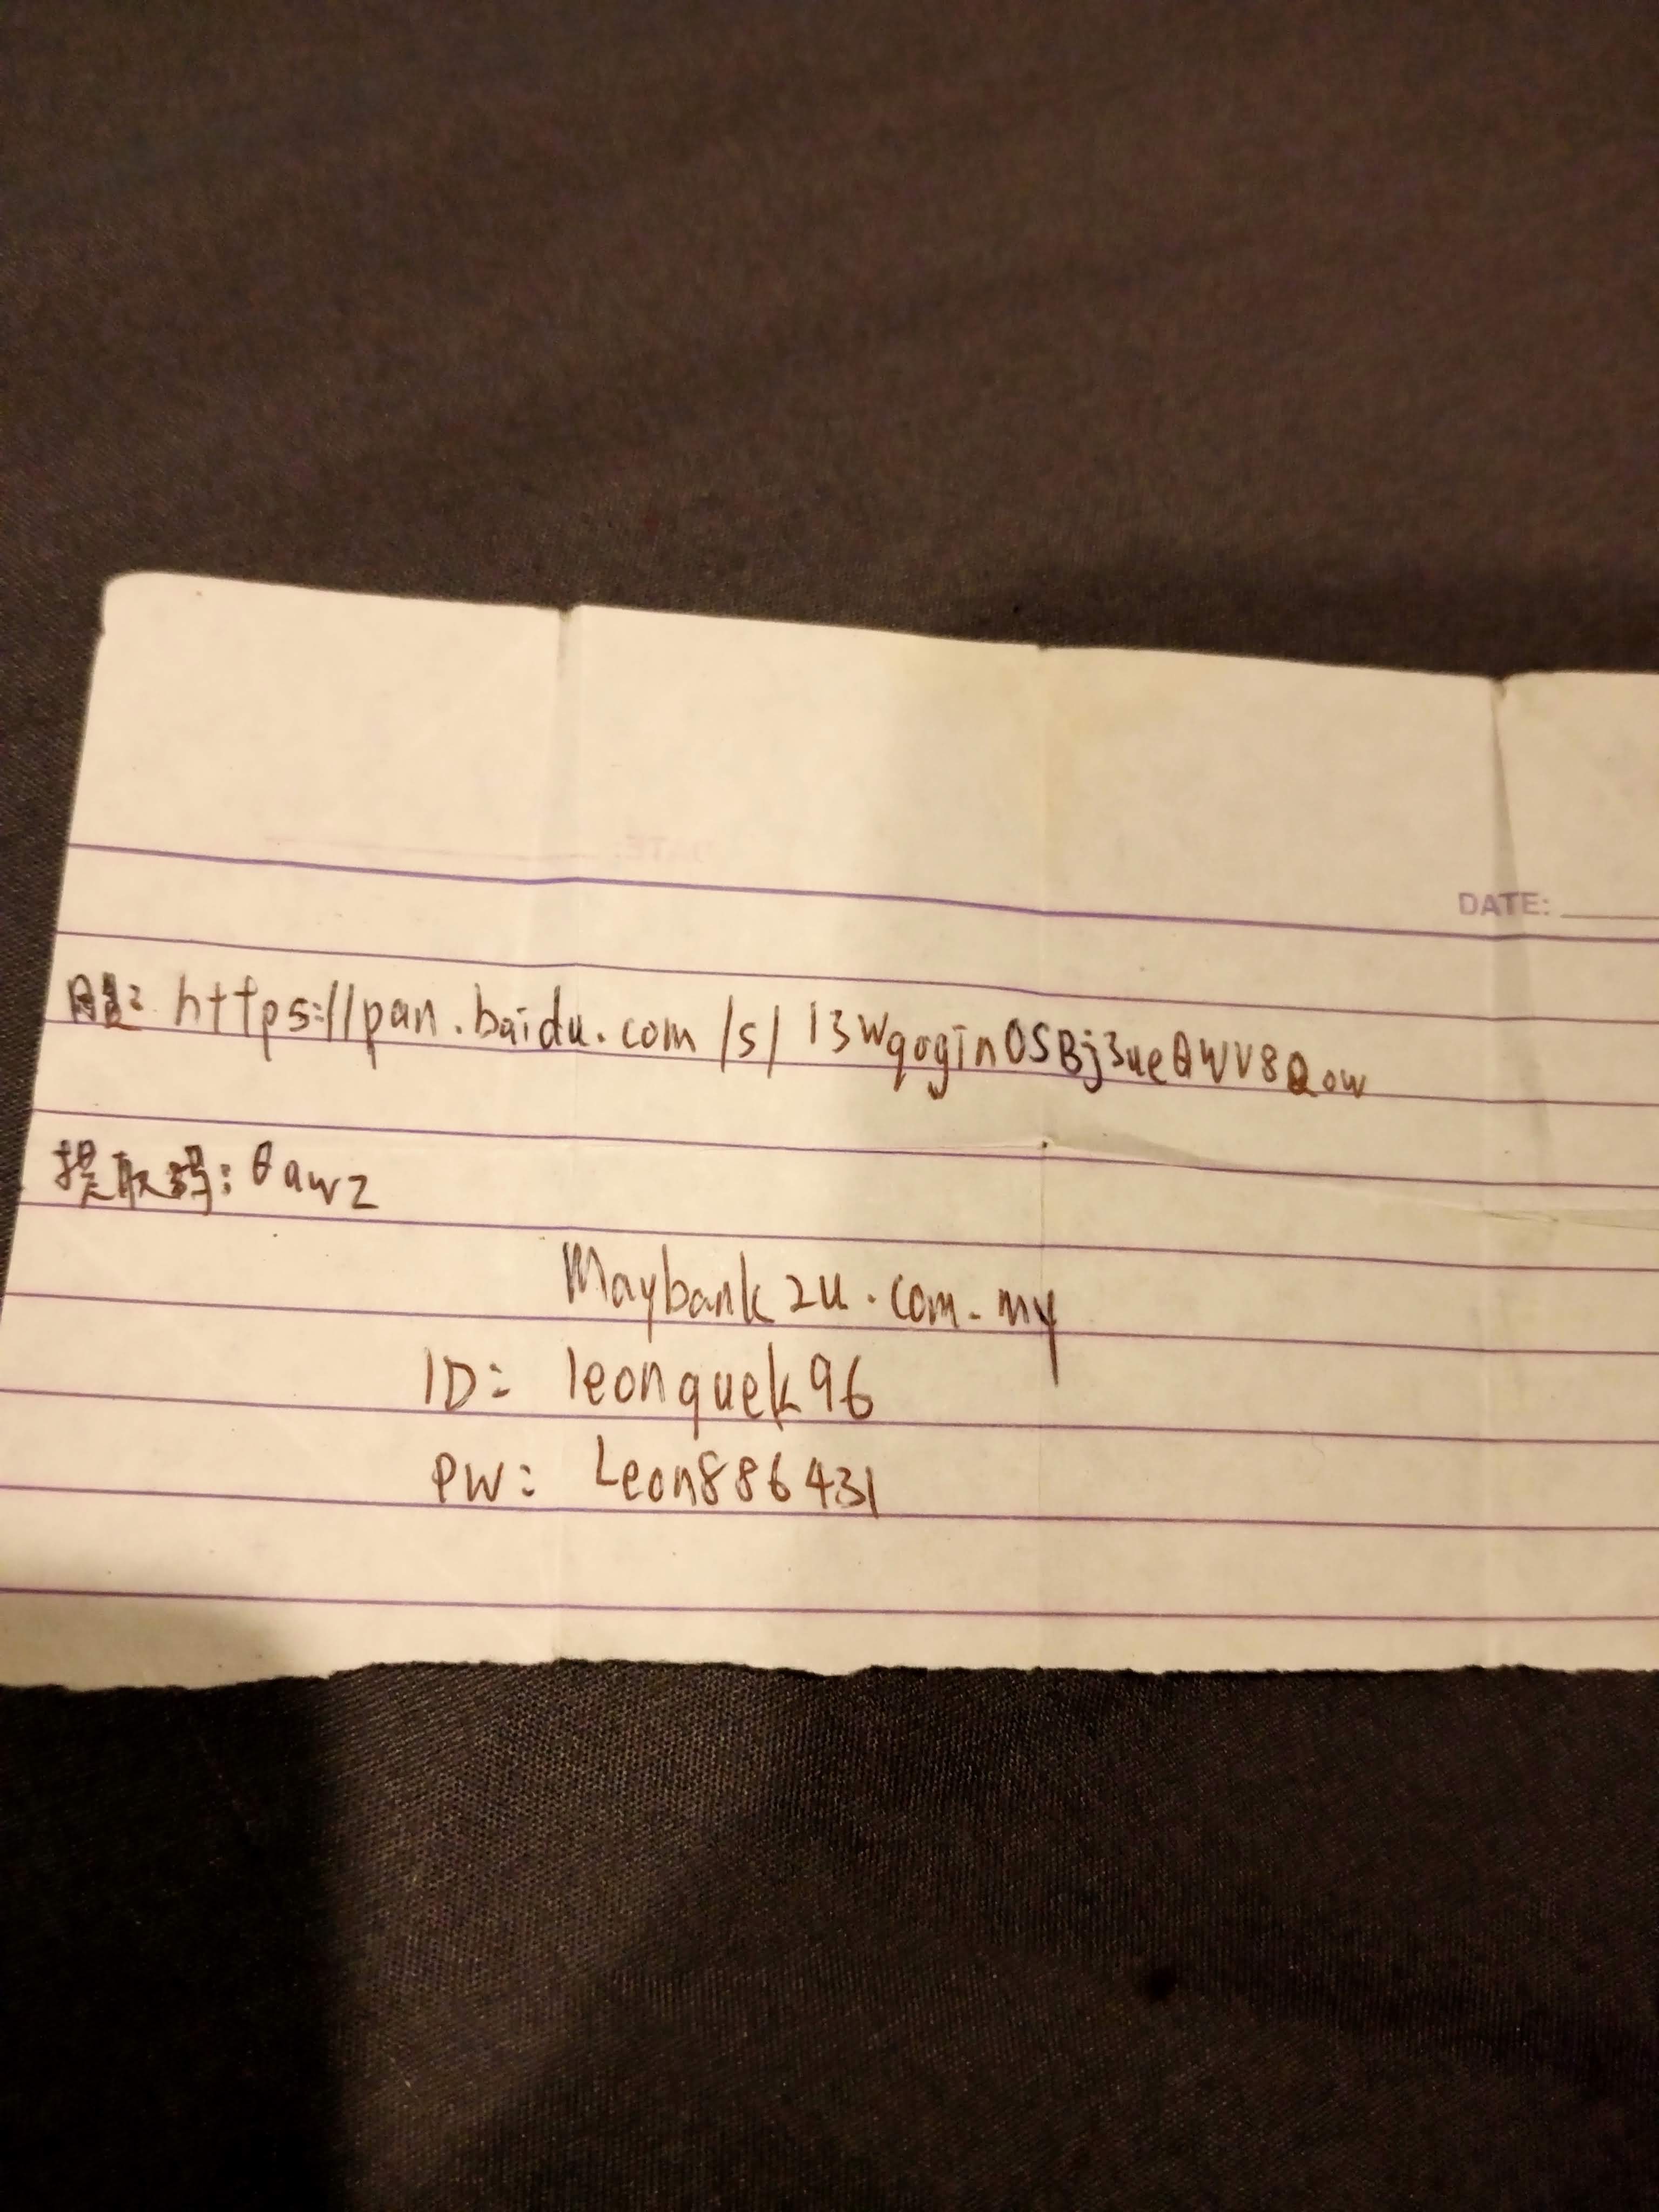 DATE:
https://pan.baidu.com/s/13Wqogin0SBj3ueQWV8Qow
提取码:
Maybank2u.com.my
ID: leonquek96
PW: Leon886431